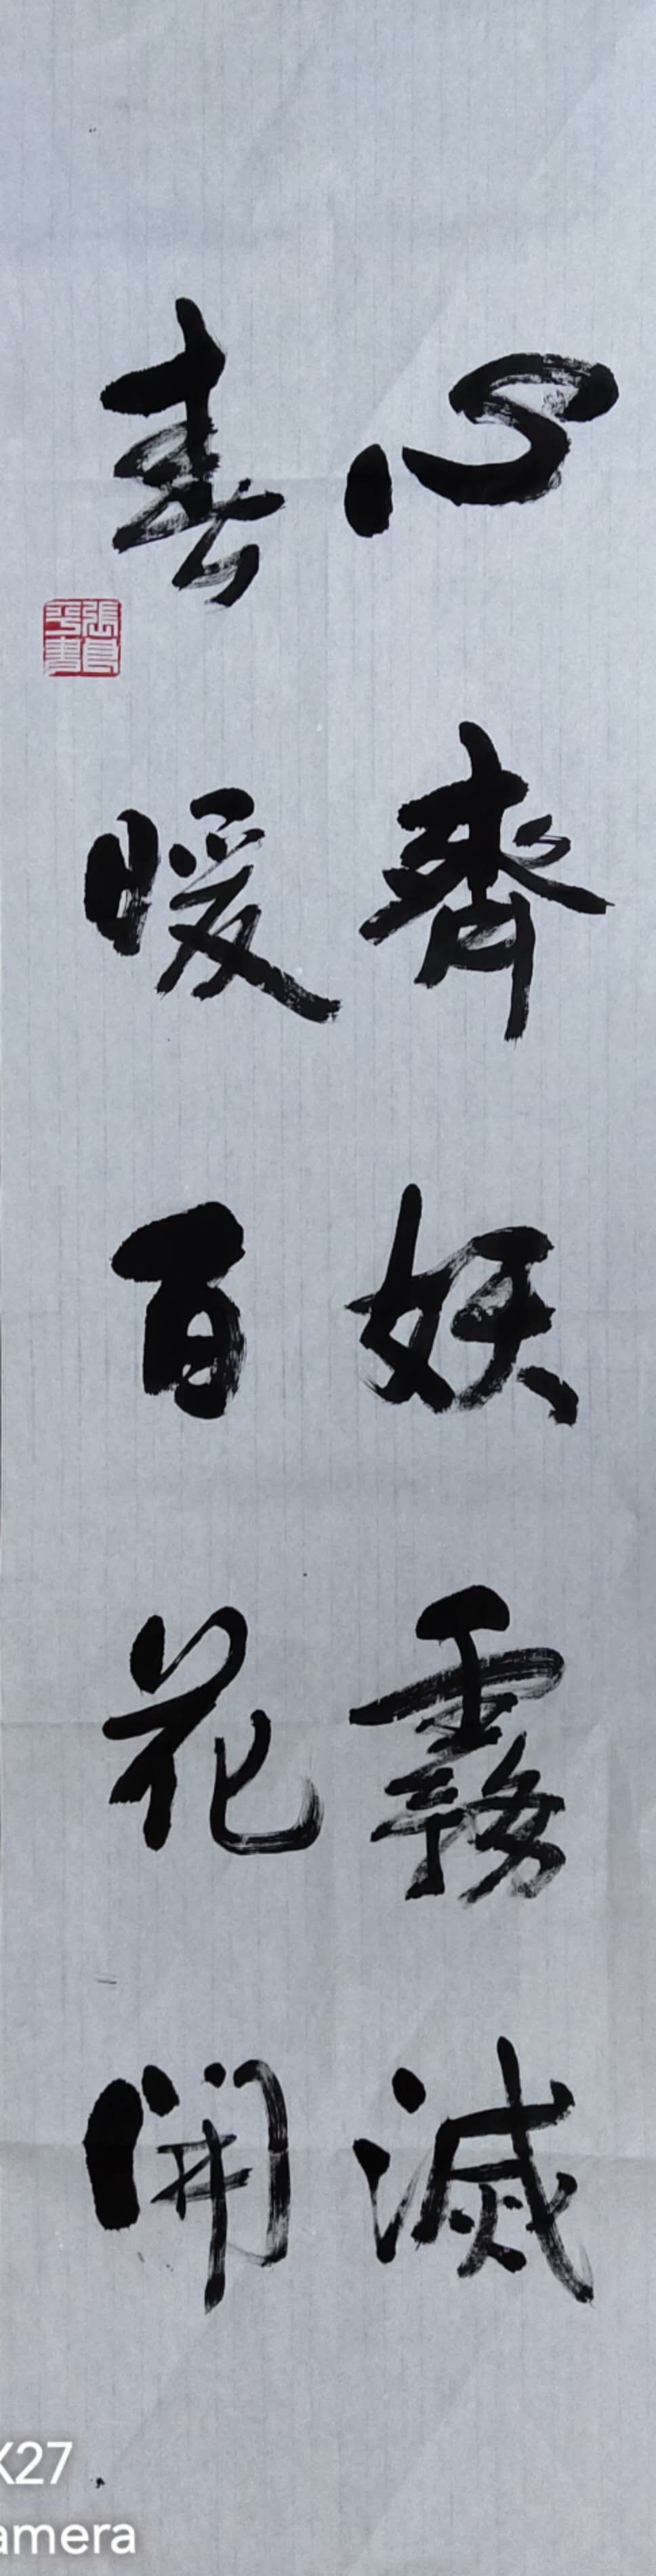 心齊妖霧滅
春暖百花開
X27
amera